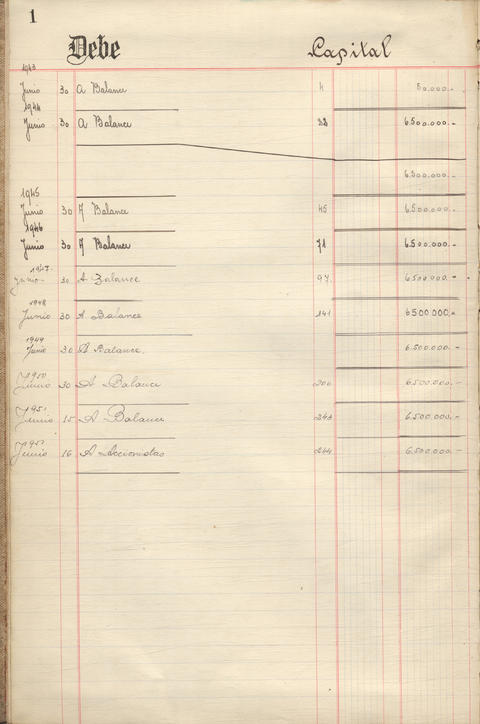 1
Debe Capital
1943
Junio 30 A Balance 4 50.000.-
1944
Junio 30 A Balance 22 6.500.000.-
6.500.000.-
1945
Junio 30 A Balance 45 6.500.000.-
1946
Junio 30 A Balance 71 6.500.000.-
1947.
Junio- 30 A Balance 97. 6.500.000.-
1948
Junio 30 A Balance 141 6500.000.-
1949
Junio 30 A Balance. 6.500.000.-
1950
Junio 30 A Balance 200 6.500.000.-
1951
Junio 15 A Balance 243 6.500.000.-
1951
Junio 16 A Accionistas 244 6.500.000.-